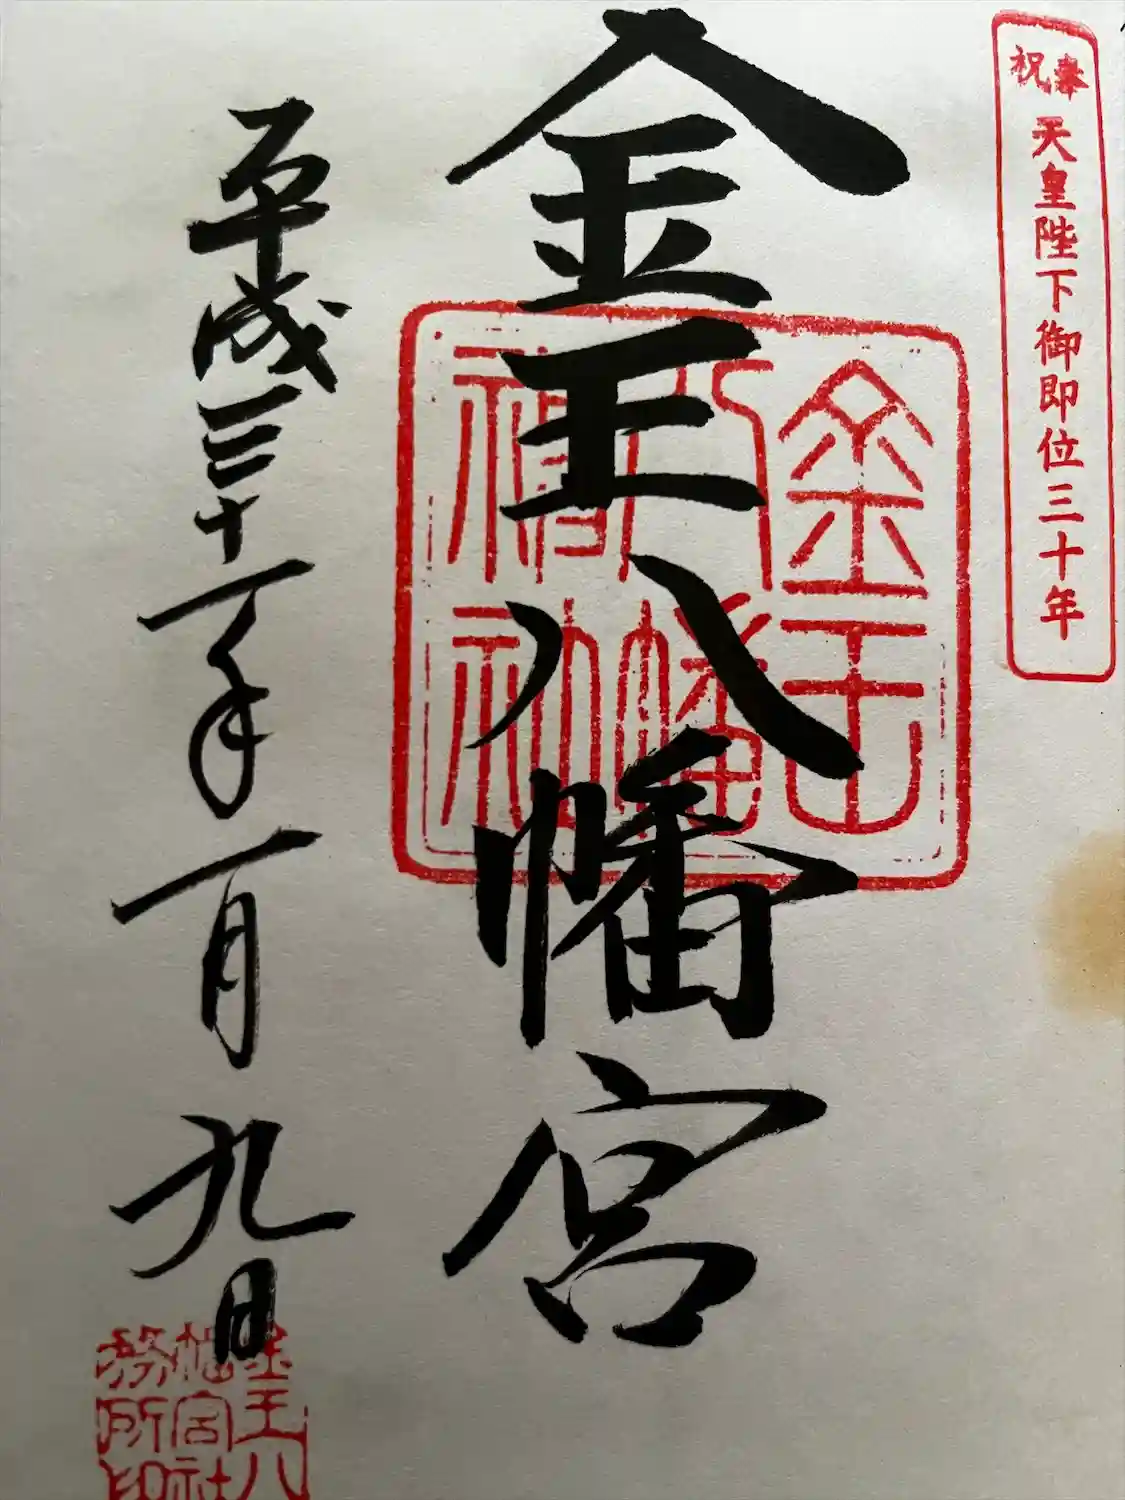 奉祝
天皇陛下御即位三十年
金王八幡宮
金王
八幡
平成三十一年一月九日
金王八
幡宮社
務所印